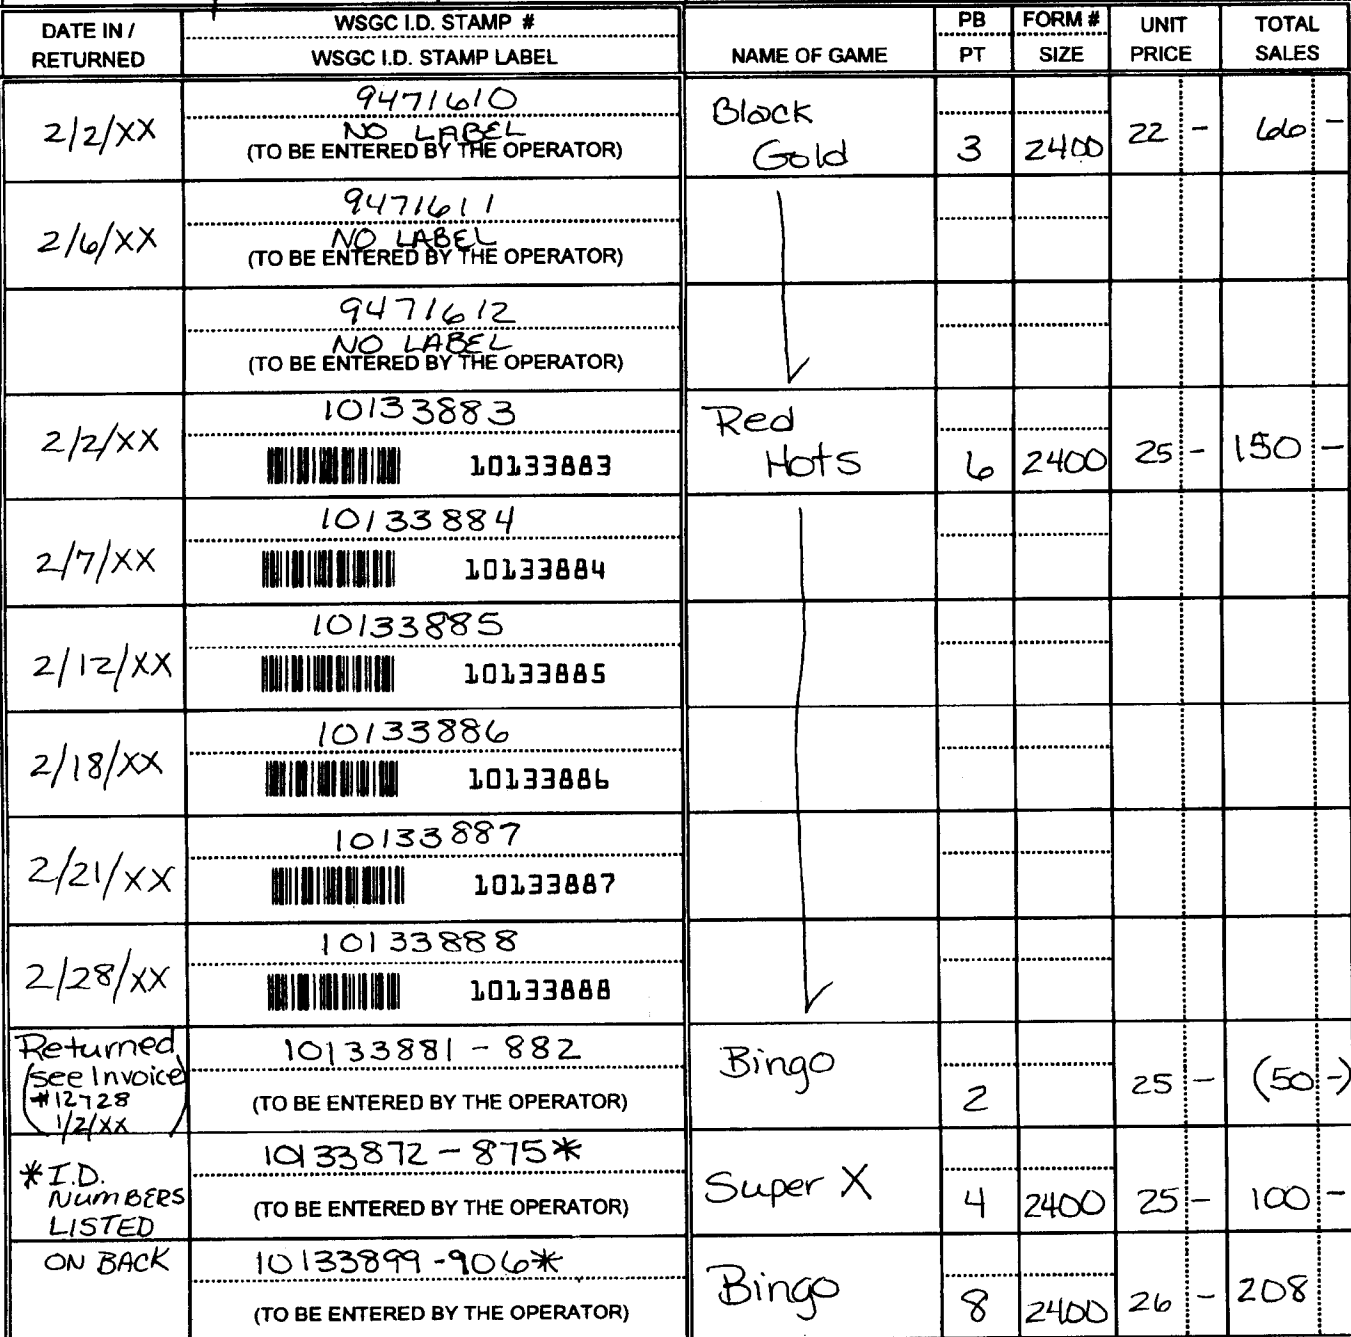 DATE IN / RETURNED
WSGC I.D. STAMP #
WSGC I.D. STAMP LABEL
NAME OF GAME
PB
PT
FORM #
SIZE
UNIT PRICE
TOTAL SALES
2/2/XX
9471610
NO LABEL
(TO BE ENTERED BY THE OPERATOR)
Black
Gold
3
2400
22 -
66 -
2/6/XX
9471611
NO LABEL
(TO BE ENTERED BY THE OPERATOR)
9471612
NO LABEL
(TO BE ENTERED BY THE OPERATOR)
2/2/XX
10133883
10133883
Red
Hots
6
2400
25 -
150 -
2/7/XX
10133884
10133884
2/12/XX
10133885
10133885
2/18/XX
10133886
10133886
2/21/XX
10133887
10133887
2/28/XX
10133888
10133888
Returned
(see Invoice
#12728
1/2/XX)
10133881 - 882
(TO BE ENTERED BY THE OPERATOR)
Bingo
2
25 -
(50 -)
* I.D.
NUMBERS
LISTED
10133872 - 875*
(TO BE ENTERED BY THE OPERATOR)
Super X
4
2400
25 -
100 -
ON BACK
10133899 - 906*
(TO BE ENTERED BY THE OPERATOR)
Bingo
8
2400
26 -
208